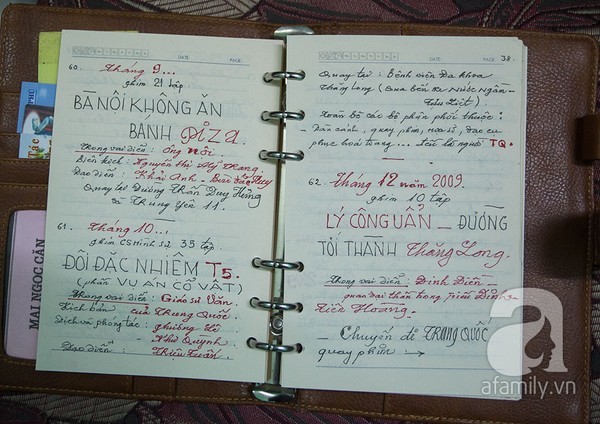 DATE: PAGE:
60. Tháng 9...
phim 21 tập
BÀ NỘI KHÔNG ĂN
BÁNH PIZA.
Trong vai diễn: Ông Nội.
Biên kịch: Nguyễn Thị Mỹ Trang.
Đạo diễn: Khải Anh - Bùi Tiến Huy
Quay tại Đường Trần Duy Hưng
và Trung Yên 11.
61. Tháng 10...
phim CS Hình sự 35 tập.
ĐỘI ĐẶC NHIỆM T5.
(phần VỤ ÁN CỔ VẬT)
Trong vai diễn: Giáo sư Văn.
Kịch bản của Trung Quốc.
Dịch và phóng tác:
Như Quỳnh.
Đạo diễn: Triệu Tuấn.
DATE: PAGE: 38.
Quay tại: Bệnh viện Đa khoa
Thăng Long (Qua bến xe Nước Ngầm -
Toàn bộ các bộ phận phối thuộc:
- dàn cảnh, quay phim, họa sĩ, đạo cụ
phục hóa trang... người TQ.
62. Tháng 12 năm 2009.
phim 10 tập
LÝ CÔNG UẨN _ ĐƯỜNG
TỚI THÀNH Thăng Long.
Trong vai diễn: Đinh Điền -
quan đại thần trong triều Đinh
Tiên Hoàng.
- Chuyến đi TRUNG QUỐC
quay phim :
MAI NGỌC CĂN
PHÚ
a
afamily.vn